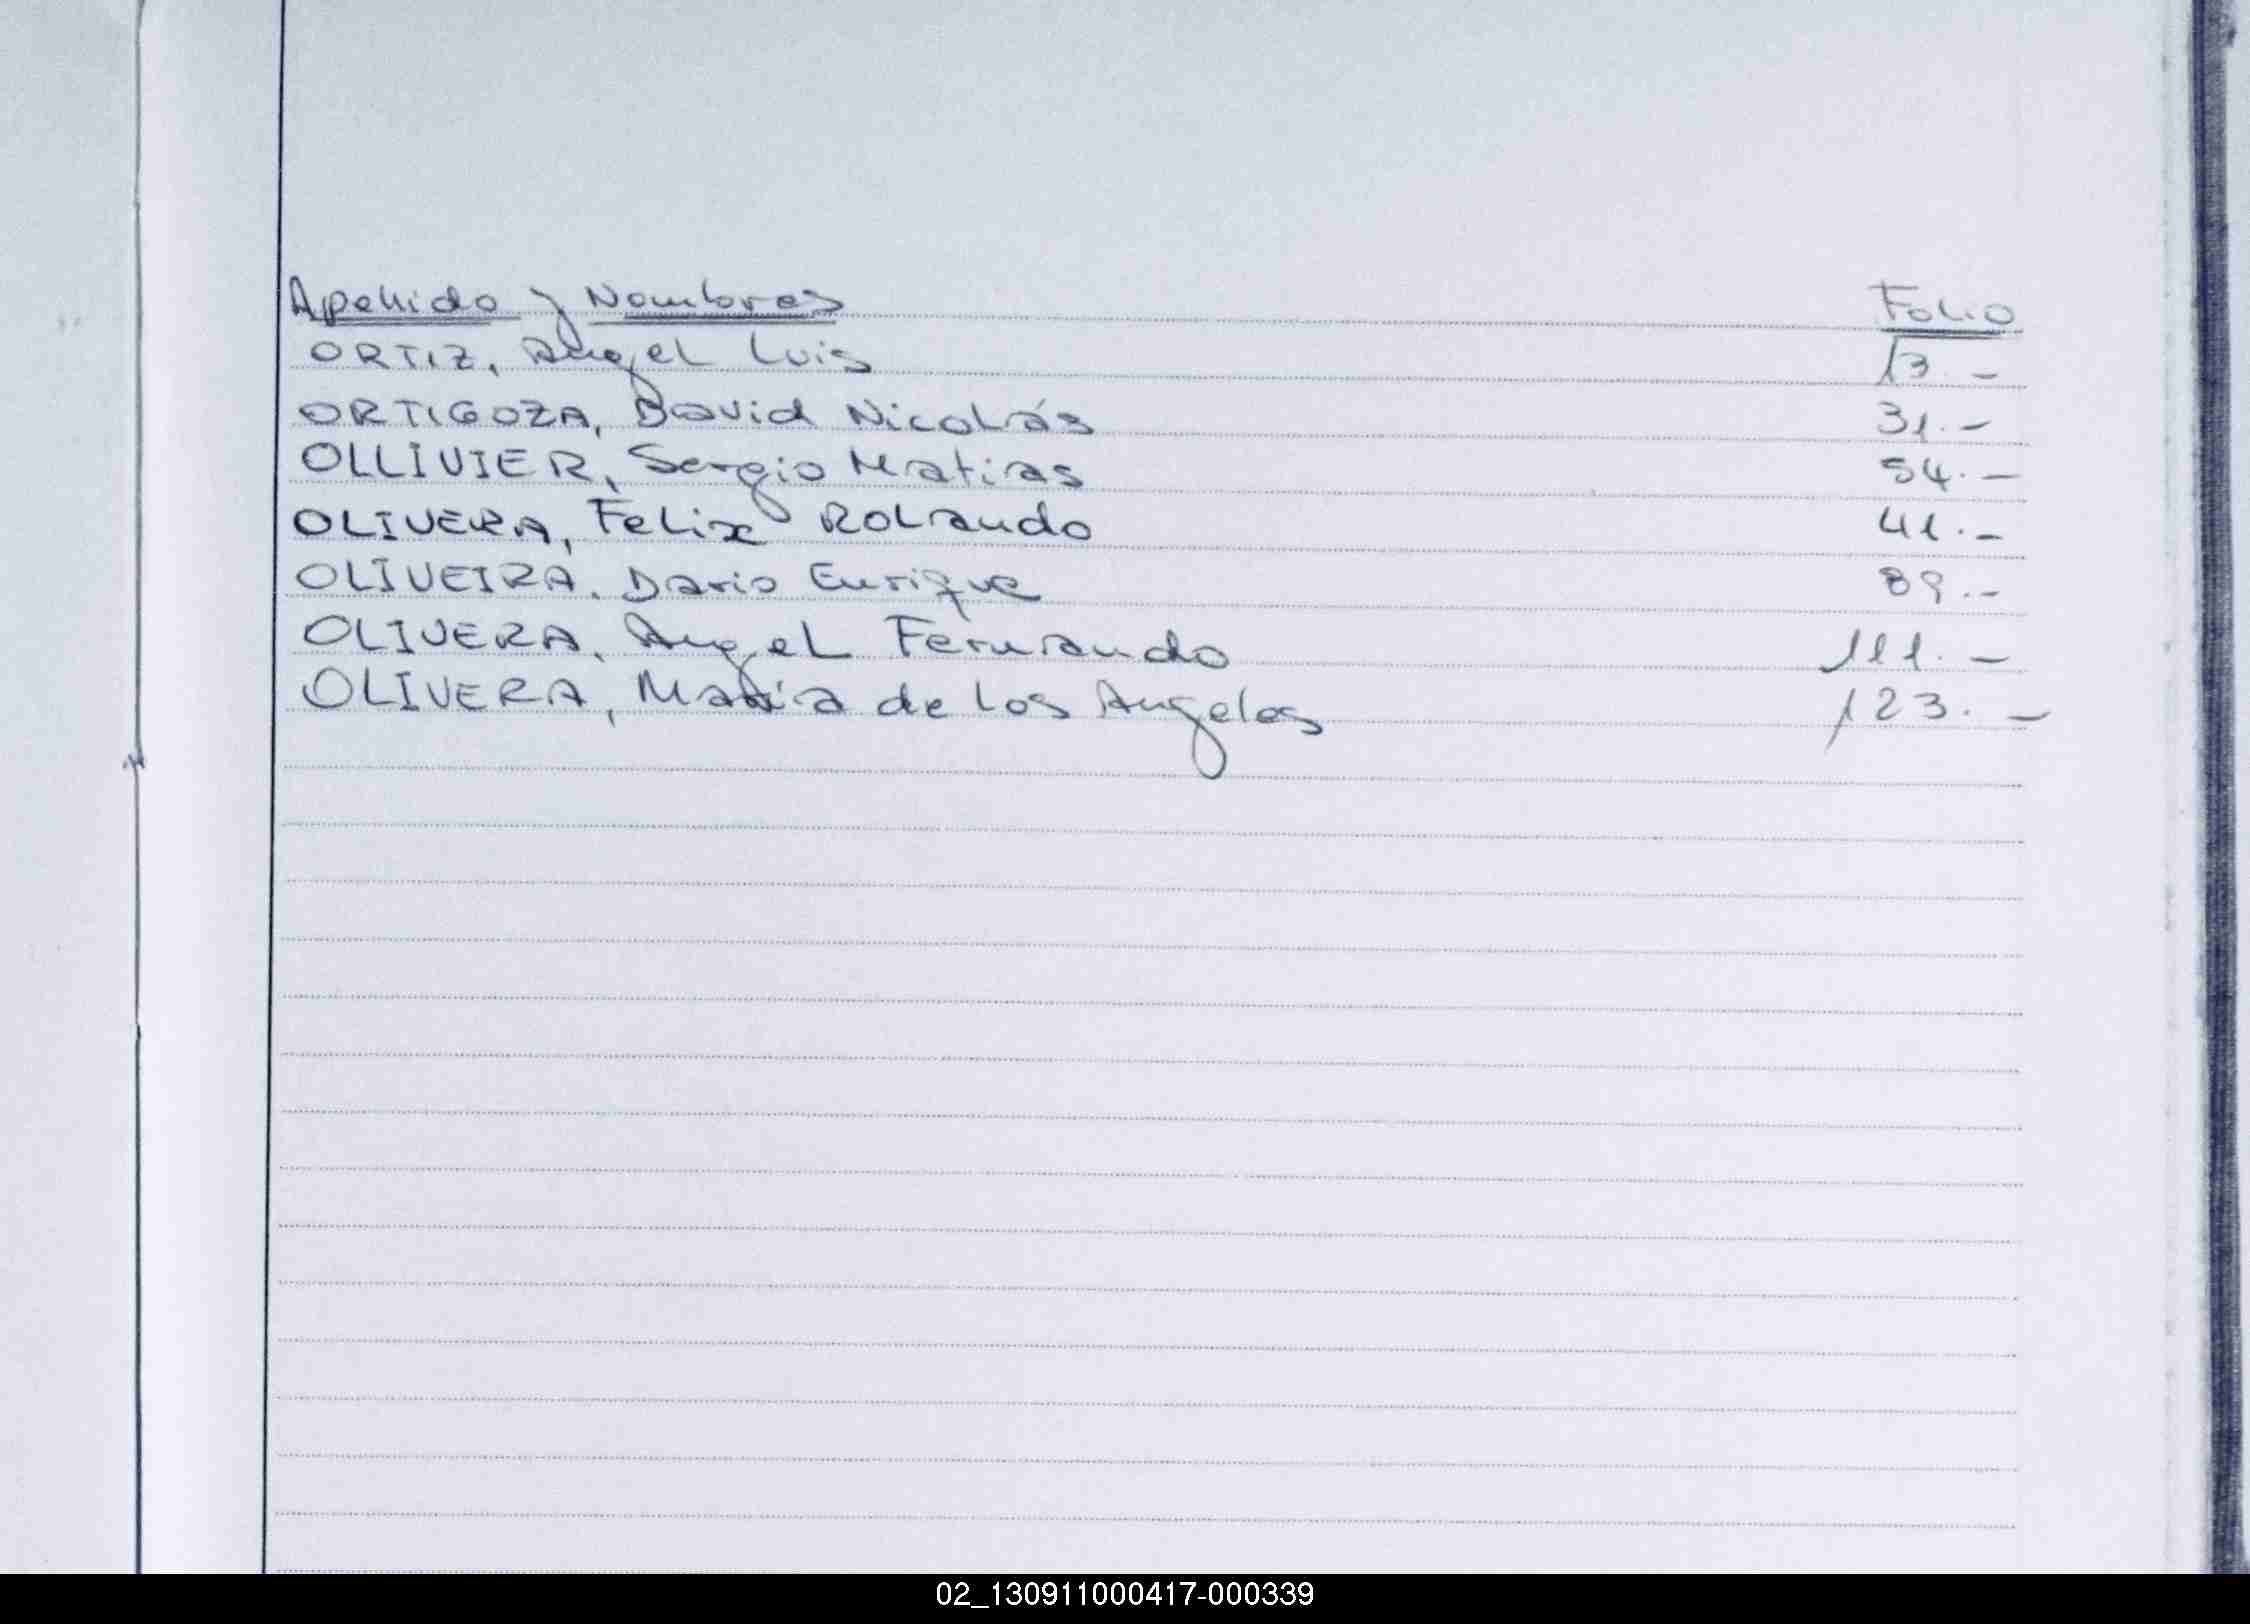 Apellido y Nombres Folio
ORTIZ, Angel Luis 13.-
ORTIGOZA, David Nicolás 31.-
OLLIVIER, Sergio Matias 54.-
OLIVERA, Felix Rolando 41.-
OLIVEIRA, Dario Enrique 89.-
OLIVERA, Angel Fernando 111.-
OLIVERA, Maria de los Angeles 123.-
02_130911000417-000339